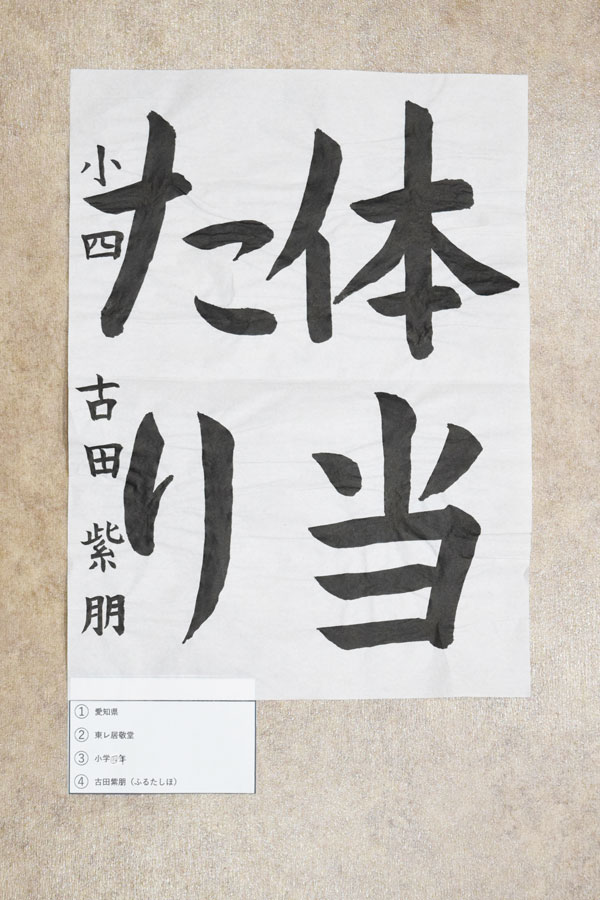 体当
たり
小四 古田 紫朋
① 愛知県
② 東レ居敬堂
③ 小学四年
④ 古田紫朋（ふるたしほ）